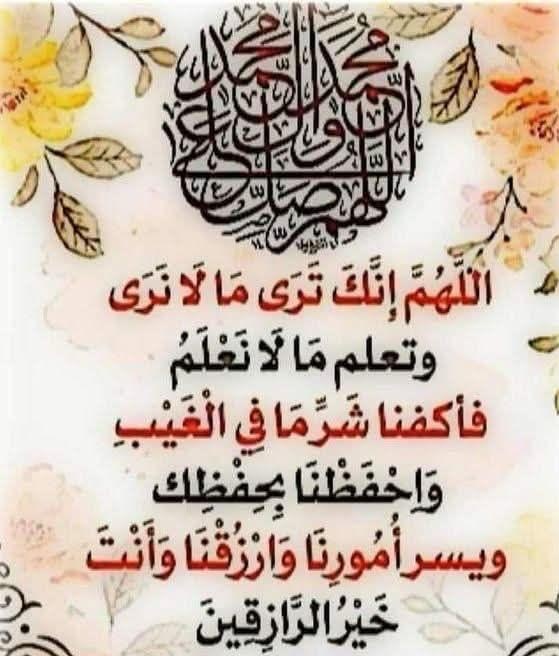 اللهم صل على محمد وآل محمد
اللَّهُمَّ إِنَّكَ تَرَى مَا لَا نَرَى
وتعلم مَا لَا نَعْلَمُ
فأكفنا شَرِّ مَا فِي الْغَيْبِ
وَاحْفَظْنَا بِحِفْظِكَ
ويسر أُمُورِنَا وَارْزُقْنَا وَأَنْتَ
خَيْرُ الرَّازِقِينَ